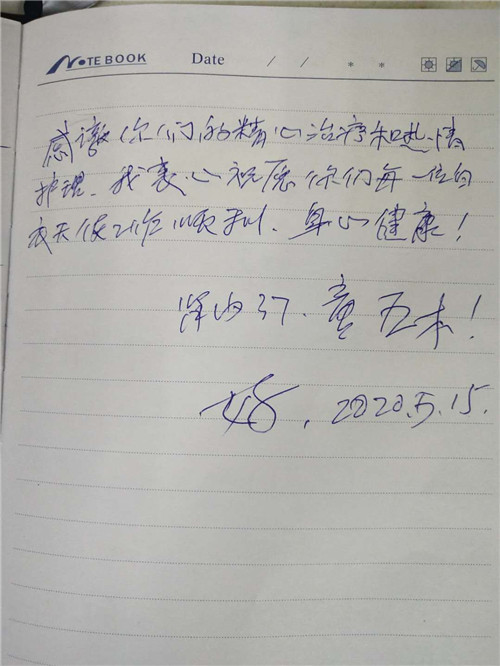 NOTEBOOK Date / / * *
感谢你们的精心治疗和热情
护理、我衷心祝愿你们每一位白
衣天使工作顺利、身心健康！
37、童五本！
2020.5.15.